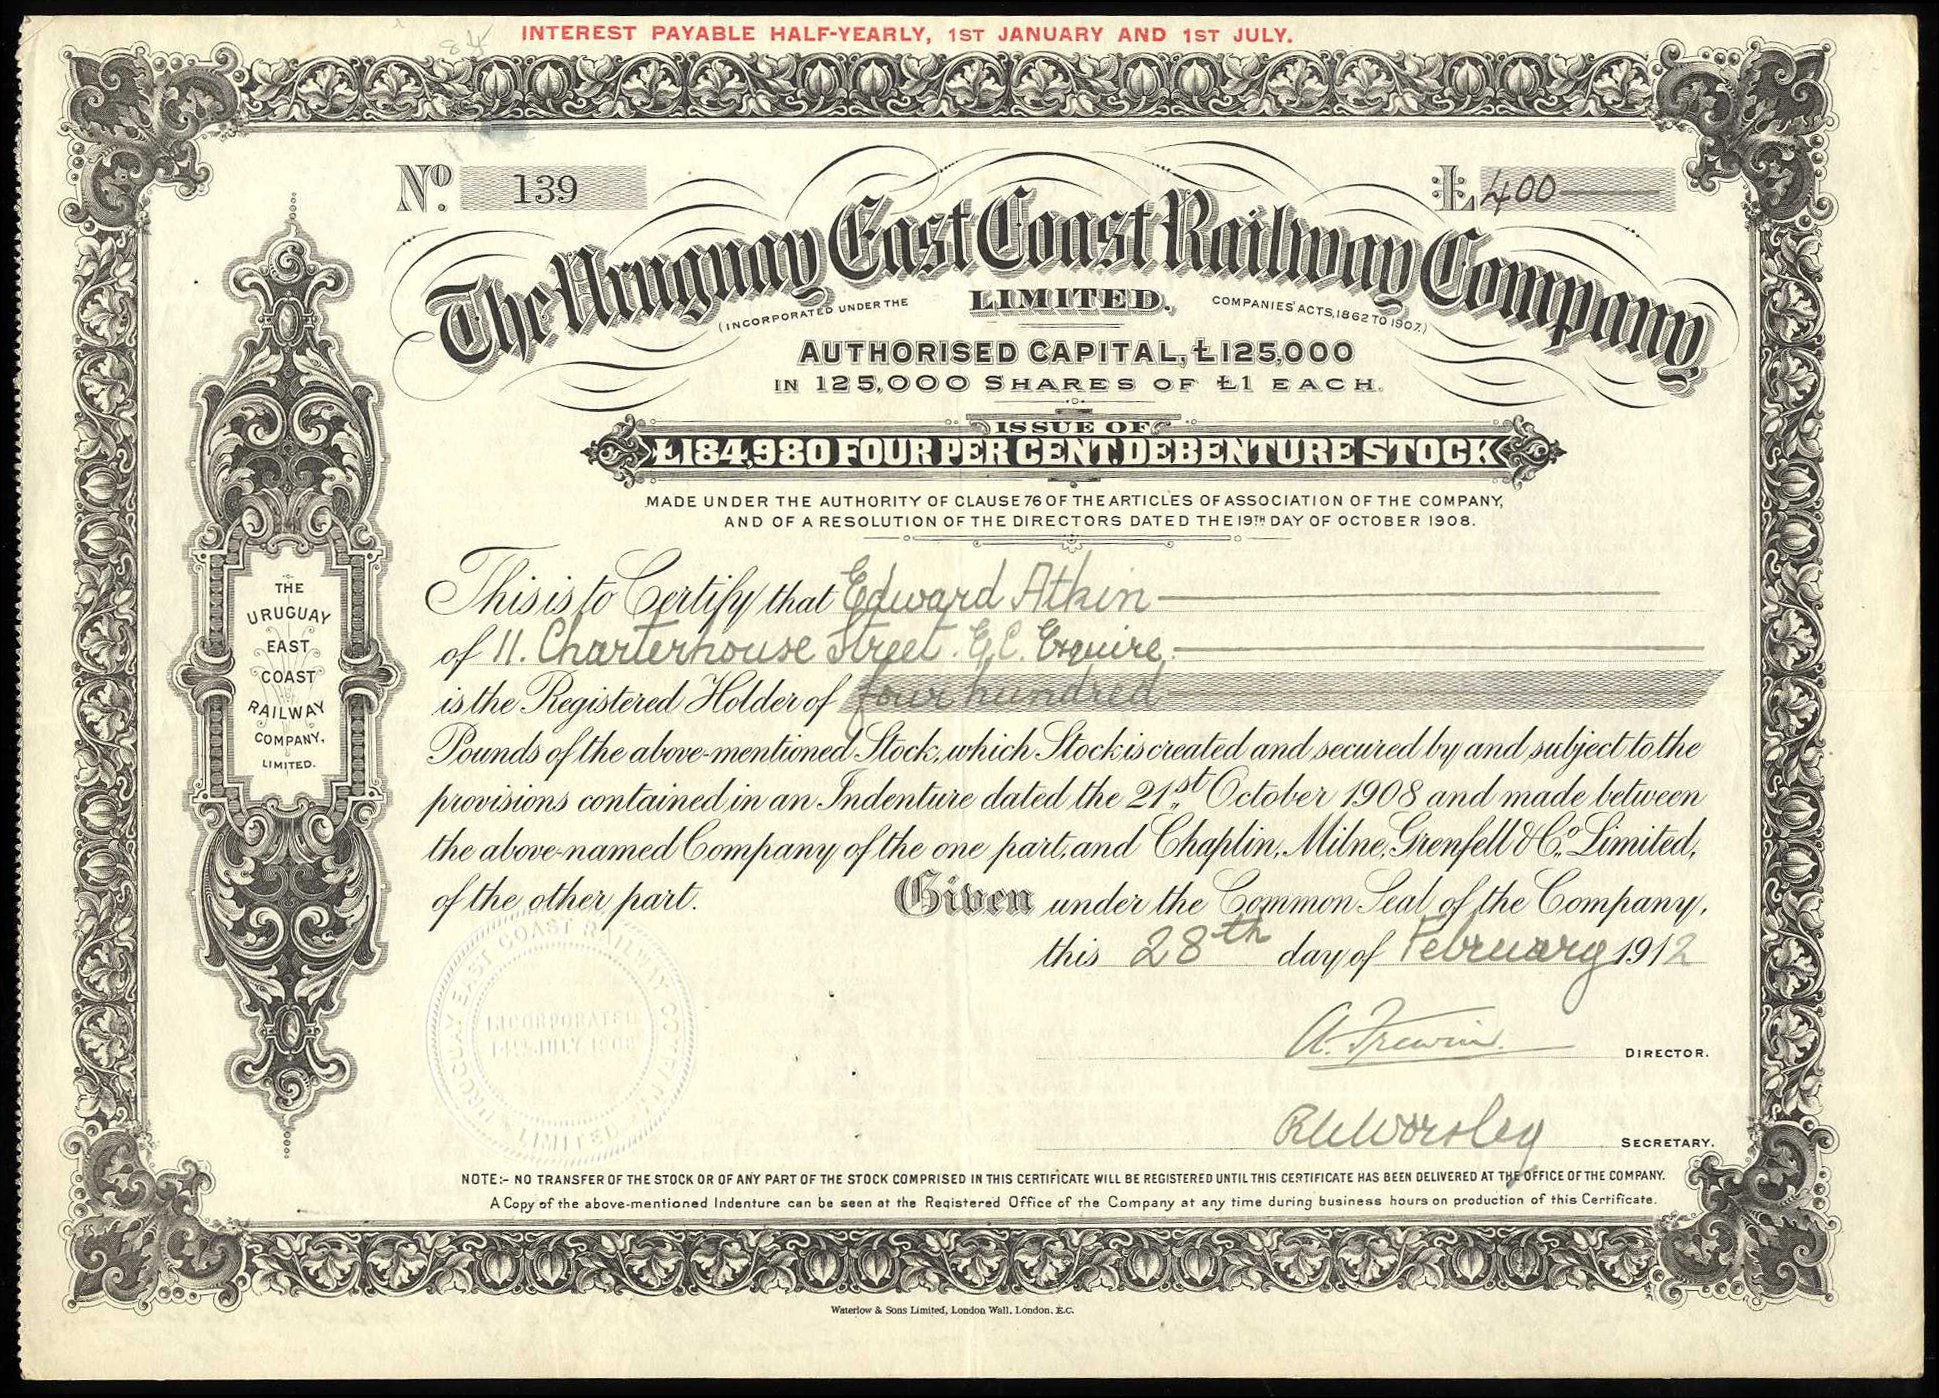 INTEREST PAYABLE HALF-YEARLY, 1ST JANUARY AND 1ST JULY.
No. 139
£400
The Uruguay East Coast Railway Company
LIMITED.
(INCORPORATED UNDER THE COMPANIES' ACTS, 1862 TO 1907.)
AUTHORISED CAPITAL, £125,000
IN 125,000 SHARES OF £1 EACH.
ISSUE OF
£184,980 FOUR PER CENT. DEBENTURE STOCK
MADE UNDER THE AUTHORITY OF CLAUSE 76 OF THE ARTICLES OF ASSOCIATION OF THE COMPANY,
AND OF A RESOLUTION OF THE DIRECTORS DATED THE 19TH DAY OF OCTOBER 1908.
This is to Certify that Edward Atkin
of 11. Charterhouse Street. E.C. Esquire.
is the Registered Holder of four hundred
Pounds of the above-mentioned Stock, which Stock is created and secured by and subject to the
provisions contained in an Indenture dated the 21st October 1908 and made between
the above-named Company of the one part, and Chaplin, Milne, Grenfell & Co., Limited,
of the other part. Given under the Common Seal of the Company,
this 28th day of February 1912
DIRECTOR.
R W Worsley SECRETARY.
THE
URUGUAY
EAST
COAST
RAILWAY
COMPANY,
LIMITED.
URUGUAY EAST COAST RAILWAY COMPANY
INCORPORATED
14TH JULY 1908
LIMITED
NOTE:- NO TRANSFER OF THE STOCK OR OF ANY PART OF THE STOCK COMPRISED IN THIS CERTIFICATE WILL BE REGISTERED UNTIL THIS CERTIFICATE HAS BEEN DELIVERED AT THE OFFICE OF THE COMPANY.
A Copy of the above-mentioned Indenture can be seen at the Registered Office of the Company at any time during business hours on production of this Certificate.
Waterlow & Sons Limited, London Wall, London. E.C.